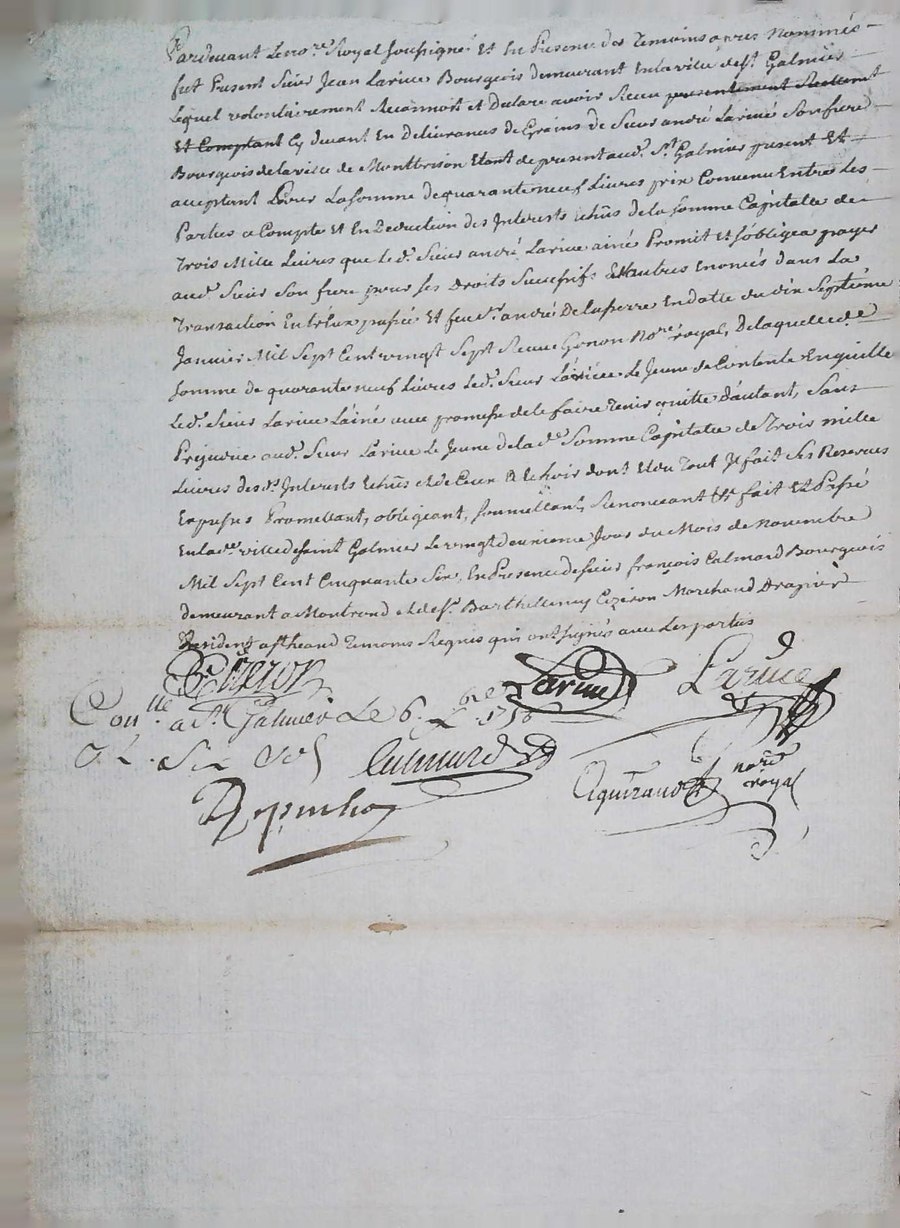 Pardevant Le no.re Royal soussigné Et En Presence des Temoins apres Nommés
fut Present Sieur Jean Larive Bourgeois demeurant En la ville de St. Galmier
Lequel volontairement Reconnoit et Declare avoir Receu presentement Reellement
Et Comptant Cy devant En delivrances de Grains de Sieur andré Larive Son frere
Bourgeois de la ville de Montbrison Etant de present aud. St. Galmier present Et
acceptant La Somme de quarante neuf Livres prix Convenu Entre Les
Parties a Compte Et En Deduction des Interests Echûs de la Somme Capitalle de
Trois Mille Livres que Led. Sieur andré Larive ainé Promit et s'obligea payer
aud. Sieur Son frere pour ses Droits Successifs Et autres Enoncés dans La
Transaction Entr'Eux passée Et feu Sr. andré Delapierre En datte du dix Septième
Janvier Mil Sept Cent vingt Sept Receue Genon No.re royal, De laquelle de
Somme de quarante neuf Livres Led. Sieur Larive Le Jeune se Contente En quitte
Led. Sieur Larive L'ainé avec promesse de le faire Tenir quitte d'autant, Sans
Prejudice aud. Sieur Larive Le Jeune de la d. Somme Capitalle de Trois mille
Livres des d. Interests Echûs et de Ceux a Echoir dont et du Tout Il fait Ses Reserves
Expresses Promettant, obligeant, soumettant, Renonceant &a fait Et Passé
En lad. ville de saint Galmier Le vingt deuxieme Jour du Mois de Novembre
Mil Sept Cent Cinquante Six, En Presence de sieur françois Calmard Bourgeois
demeurant a Montrond et de Sr. Barthellemy Cizeron Marchand Drapier
Resident Temoins Requis qui ont signés avec Les parties
Cizeron Larive Larive
Con.lle a St. Galmier Le 6. 1756
R. Six Sols Calmard
nore royal